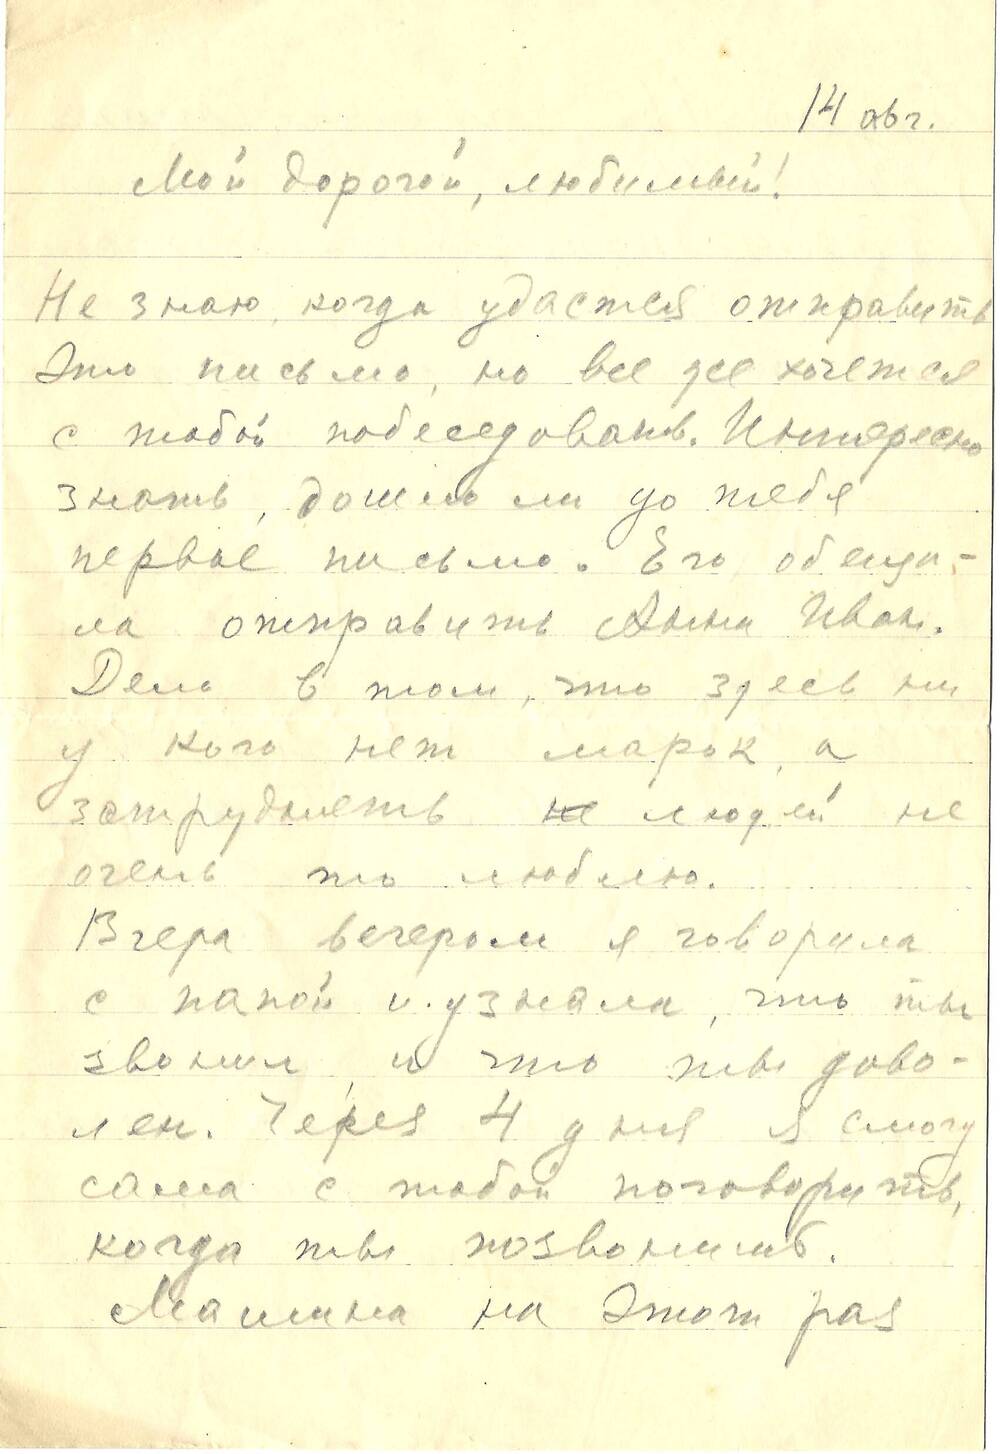 14 авг.
Мой дорогой, любимый!
Не знаю, когда удастся отправить
это письмо, но все же хочется
с тобой побеседовать. Интересно
знать, дошло ли до тебя
первое письмо. Его обеща-
ла отправить Анна Иван.
Дело в том, что здесь ни
у кого нет марок, а
затруднять не людей не
очень то люблю.
Вчера вечером я говорила
с папой и узнала, что ты
звонил, и что ты дово-
лен. Через 4 дня я смогу
сама с тобой поговорить,
когда ты позвонишь.
Машина на этот раз